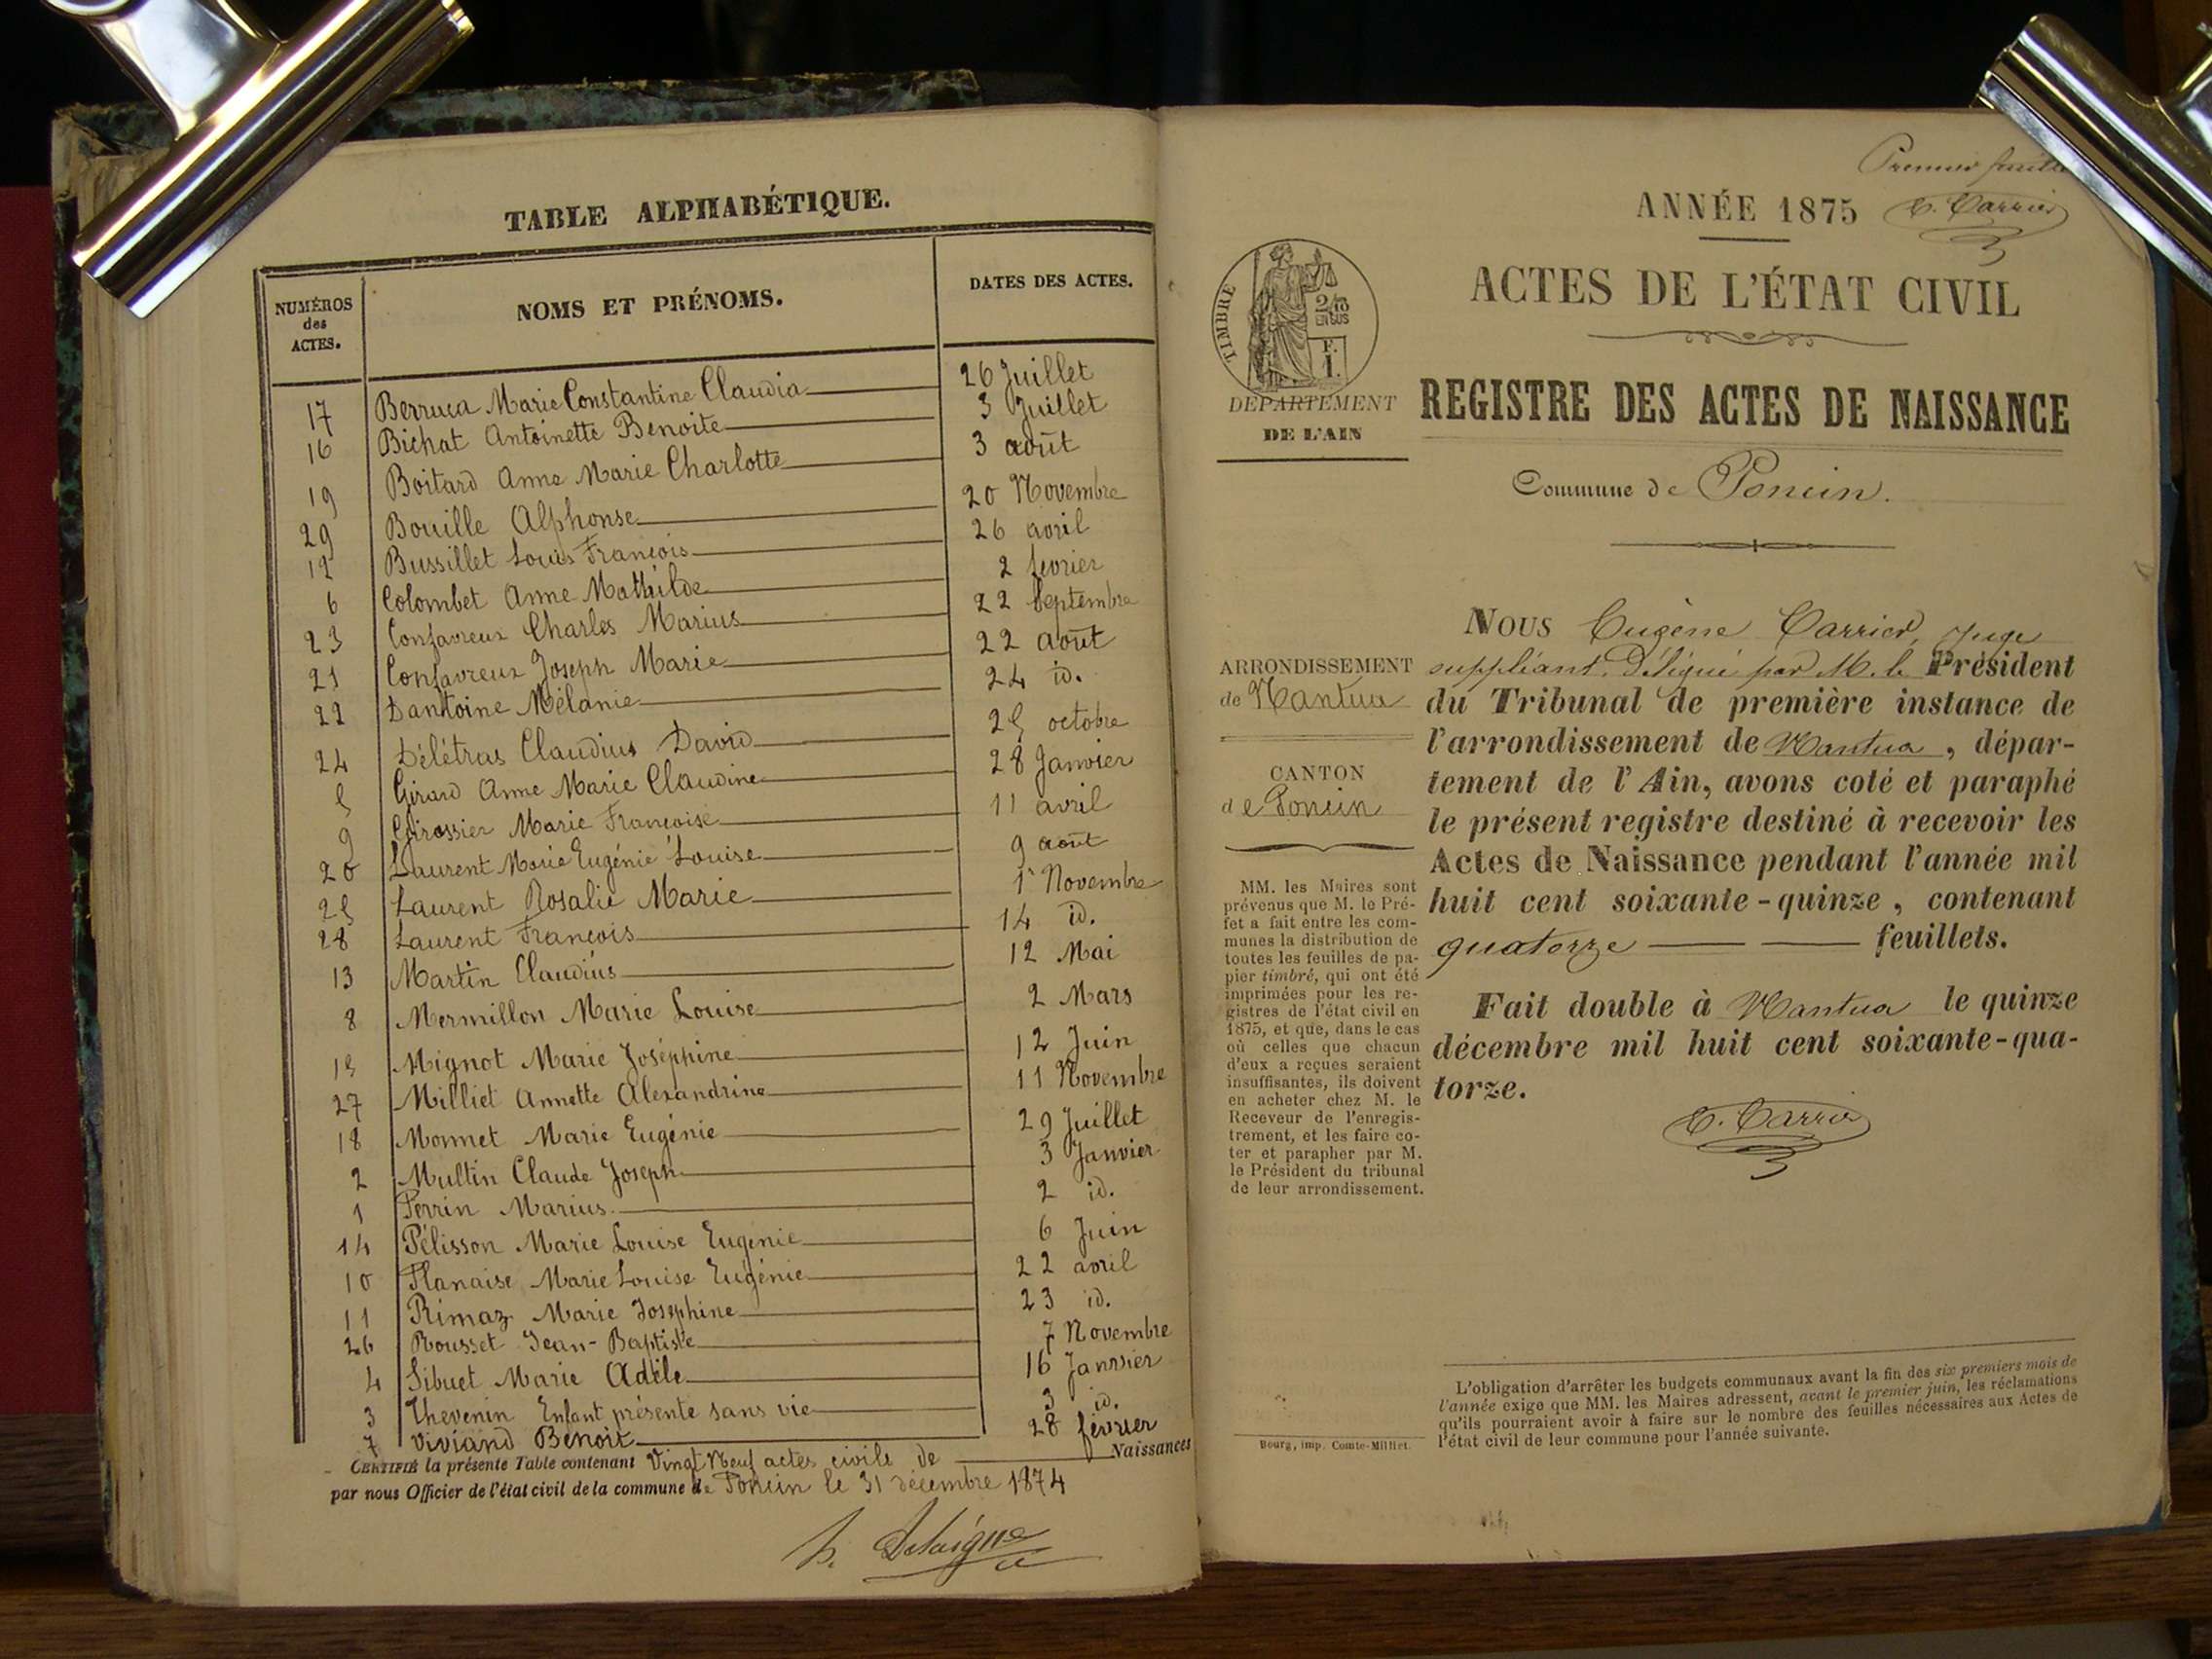 TABLE ALPHABÉTIQUE.
NUMÉROS des ACTES. NOMS ET PRÉNOMS. DATES DES ACTES.
17 Berruca Marie Constantine Claudia 26 Juillet
16 Bichat Antoinette Benoite 3 Juillet
19 Boitard Anne Marie Charlotte 3 août
29 Bouille Alphonse 20 Novembre
12 Bussillet Louis François 26 avril
6 Colombet Anne Mathilde 2 février
23 Confavreux Charles Marius 22 Septembre
21 Confavreux Joseph Marie 22 août
22 Danttoine Mélanie 24 id.
24 Délétras Claudius David 25 octobre
5 Girard Anne Marie Claudine 28 Janvier
9 Girossier Marie Françoise 11 avril
20 Laurent Marie Eugénie Louise 9 août
25 Laurent Rosalie Marie 1er Novembre
28 Laurent François 14 id.
13 Martin Claudius 12 Mai
8 Mermillon Marie Louise 2 Mars
15 Mignot Marie Joséphine 12 Juin
27 Milliet Annette Alexandrine 11 Novembre
18 Monnet Marie Eugénie 29 Juillet
2 Multin Claude Joseph 3 Janvier
1 Perrin Marius 2 id.
14 Pélisson Marie Louise Eugénie 6 Juin
10 Planaise Marie Louise Eugénie 22 avril
11 Rimaz Marie Josephine 23 id.
26 Rousset Jean-Baptiste 7 Novembre
4 Sibuet Marie Adèle 16 Janvier
3 Thevenin Enfant présenté sans vie 3 id.
7 Viviand Benoit 28 février
CERTIFIÉ la présente Table contenant Vingt Neuf actes civils de Naissances
par nous Officier de l'état civil de la commune de Poncin le 31 décembre 1874
Premier feuillet
ANNÉE 1875 E. Carrier
ACTES DE L'ÉTAT CIVIL
TIMBRE
2/10
EN SUS
F.
1.
DÉPARTEMENT
DE L'AIN
REGISTRE DES ACTES DE NAISSANCE
Commune de Poncin.
ARRONDISSEMENT
de Nantua
CANTON
de Poncin
MM. les Maires sont
prévenus que M. le Pré-
fet a fait entre les com-
munes la distribution de
toutes les feuilles de pa-
pier timbré, qui ont été
imprimées pour les re-
gistres de l'état civil en
1875, et que, dans le cas
où celles que chacun
d'eux a reçues seraient
insuffisantes, ils doivent
en acheter chez M. le
Receveur de l'enregis-
trement, et les faire co-
ter et parapher par M.
le Président du tribunal
de leur arrondissement.
NOUS Eugène Carrier, Juge
suppléant. Délégué par M. le Président
du Tribunal de première instance de
l'arrondissement de Nantua, dépar-
tement de l'Ain, avons coté et paraphé
le présent registre destiné à recevoir les
Actes de Naissance pendant l'année mil
huit cent soixante-quinze, contenant
quatorze feuillets.
Fait double à Nantua le quinze
décembre mil huit cent soixante-qua-
torze.
E. Carrier
L'obligation d'arrêter les budgets communaux avant la fin des six premiers mois de
l'année exige que MM. les Maires adressent, avant le premier juin, les réclamations
qu'ils pourraient avoir à faire sur le nombre des feuilles nécessaires aux Actes de
l'état civil de leur commune pour l'année suivante.
Bourg, imp. Comte-Milliet.